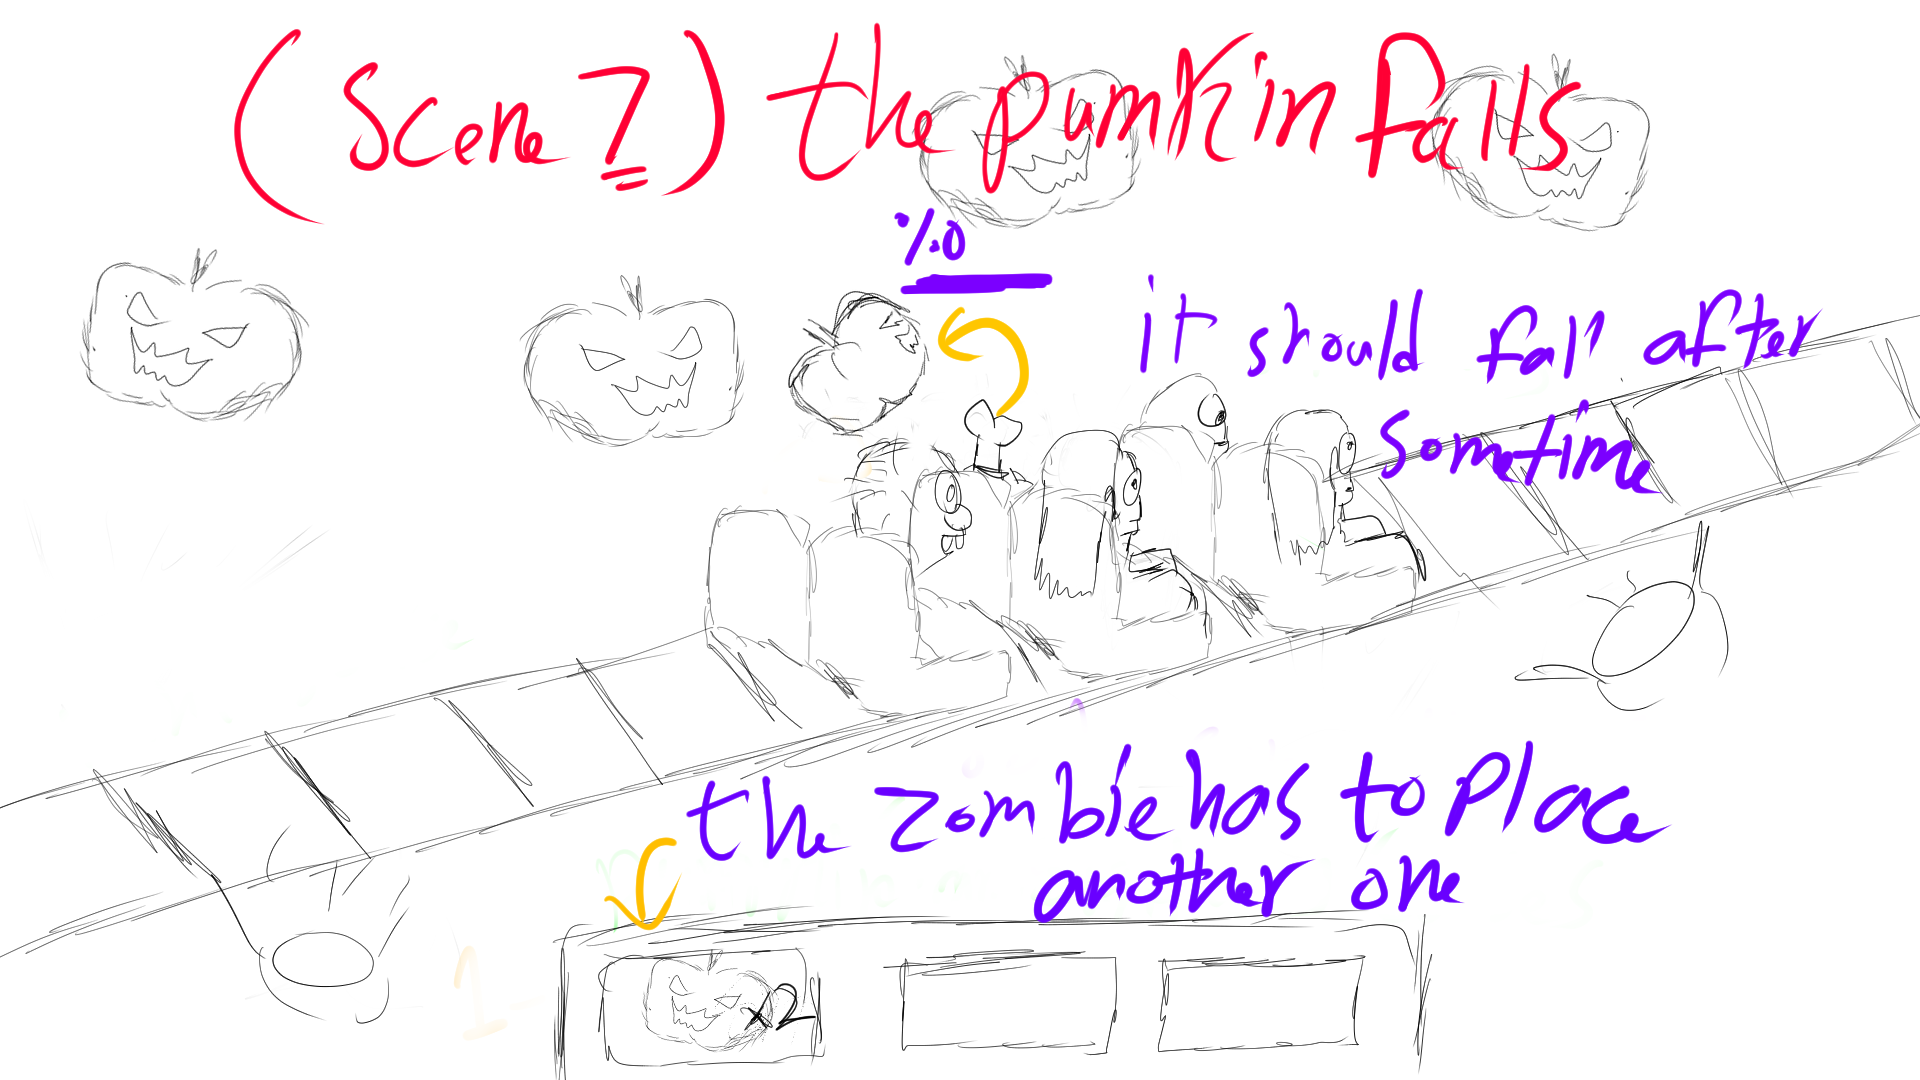 (Scene 7) the pumkin falls
%0
it should fall after
sometime
the zombie has to place
another one
x2